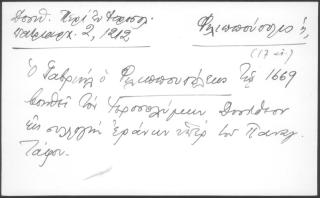 Δοσιθ. Περὶ Ἱεροσολ. Φιλιππούπολις ἡ,
πατριαρχ. 2, 1212 (17 αἰ.)
Ὁ Γαβριὴλ ὁ Φιλιππουπόλεως τῷ 1669
βοηθεῖ τὸν Ἱεροσολύμων Δοσίθεον
εἰς συλλογὴν ἐράνων ὑπὲρ τοῦ Παναγ.
Τάφου.